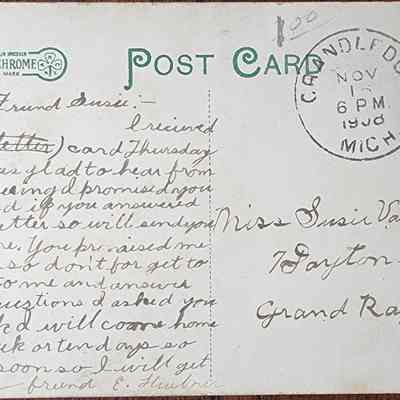 CHROME
MARK
POST CARD
1.00
CRUNDLEDO
NOV
6 P.M.
MICH.
Friend Susie:-
I recieved
letter) card Thursday
glad to hear from
I promised you
if you answered
letter so will send you
me. You promised me
so don't for get to
to me and answer
questions I asked you
will come home
or ten days so
soon so I will get
friend E.
Miss Susie Va
Dayton
Grand Ra